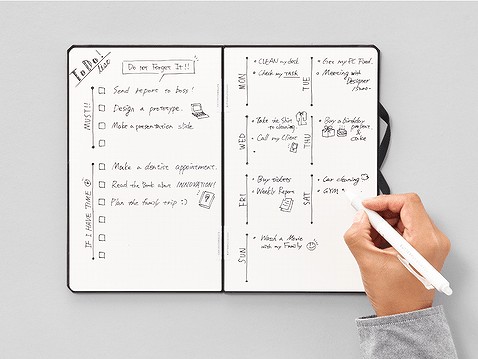 ToDo!
List
Do not Forget It!!
MUST!!
Send report to boss!
Design a prototype.
Make a presentation slide.
IF I HAVE TIME
Make a dentist appointment.
Read the book about INNOVATION!
Plan the family trip :)
MON
• CLEAN my desk
• Check my TASK
TUE
• Get my PC Fixed.
• Meeting with
Designer
WED
• Take the Skirt
to cleaning.
• Call my Client
THU
• Buy a birthday
present
&
cake
FRI
• Buy tickets
• Weekly Report
SAT
• Car cleaning
• GYM
SUN
• Watch a Movie
with my Family